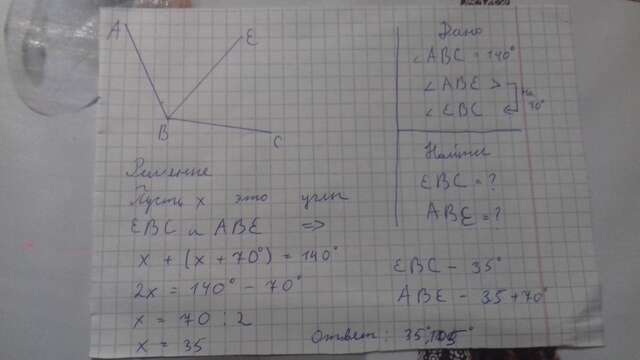 A
E
B
C
Дано
∠ABC = 140°
∠ABE >
∠EBC
на 70°
Найти
EBC = ?
ABE = ?
Решение
Пусть x это углы
EBC и ABE =>
x + (x + 70°) = 140°
2x = 140° - 70°
x = 70 : 2
x = 35
EBC - 35°
ABE - 35+70°
Ответ: 35°, 105°